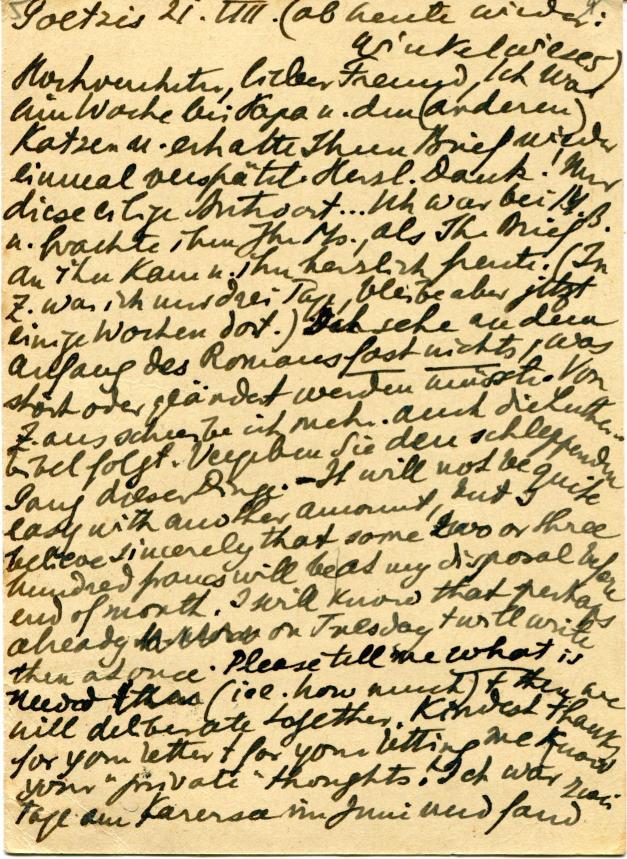 Goetzis 21. VIII. (ab heute wieder:
Winkelwiese)
Hochverehrter, lieber Freund, Ich war
eine Woche bei Papa u. den (anderen)
Katzen u. erhalte Ihren Brief wieder
einmal verspätet. Herzl. Dank! Nur
diese eilige Antwort... Ich war bei
u. brachte ihm Ihr Ms., als Ihr Brief
an ihn kam u. ihn herzlich freute. (In
Z. war ich nur drei Tage, bleibe aber jetzt
einige Wochen dort.) Ich sehe an dem
Anfang des Romans fast nichts, was
stört oder geändert werden müsste. Von
Z. aus schreibe ich mehr. Auch die Luther-
bibel folgt. Vergeben Sie den schleppenden
Gang dieser Dinge. - It will not be quite
easy with another amount, but I
believe sincerely that some two or three
hundred francs will be at my disposal before
end of month. I will know that perhaps
already on Tuesday + will write
then at once. Please tell me what is
needed then (i.e. how much) + then we
will deliberate together. Kindest thanks
for your letter + for your letting me know
your "private" thoughts! Ich war zwei
Tage am Karersee im Juni und fand